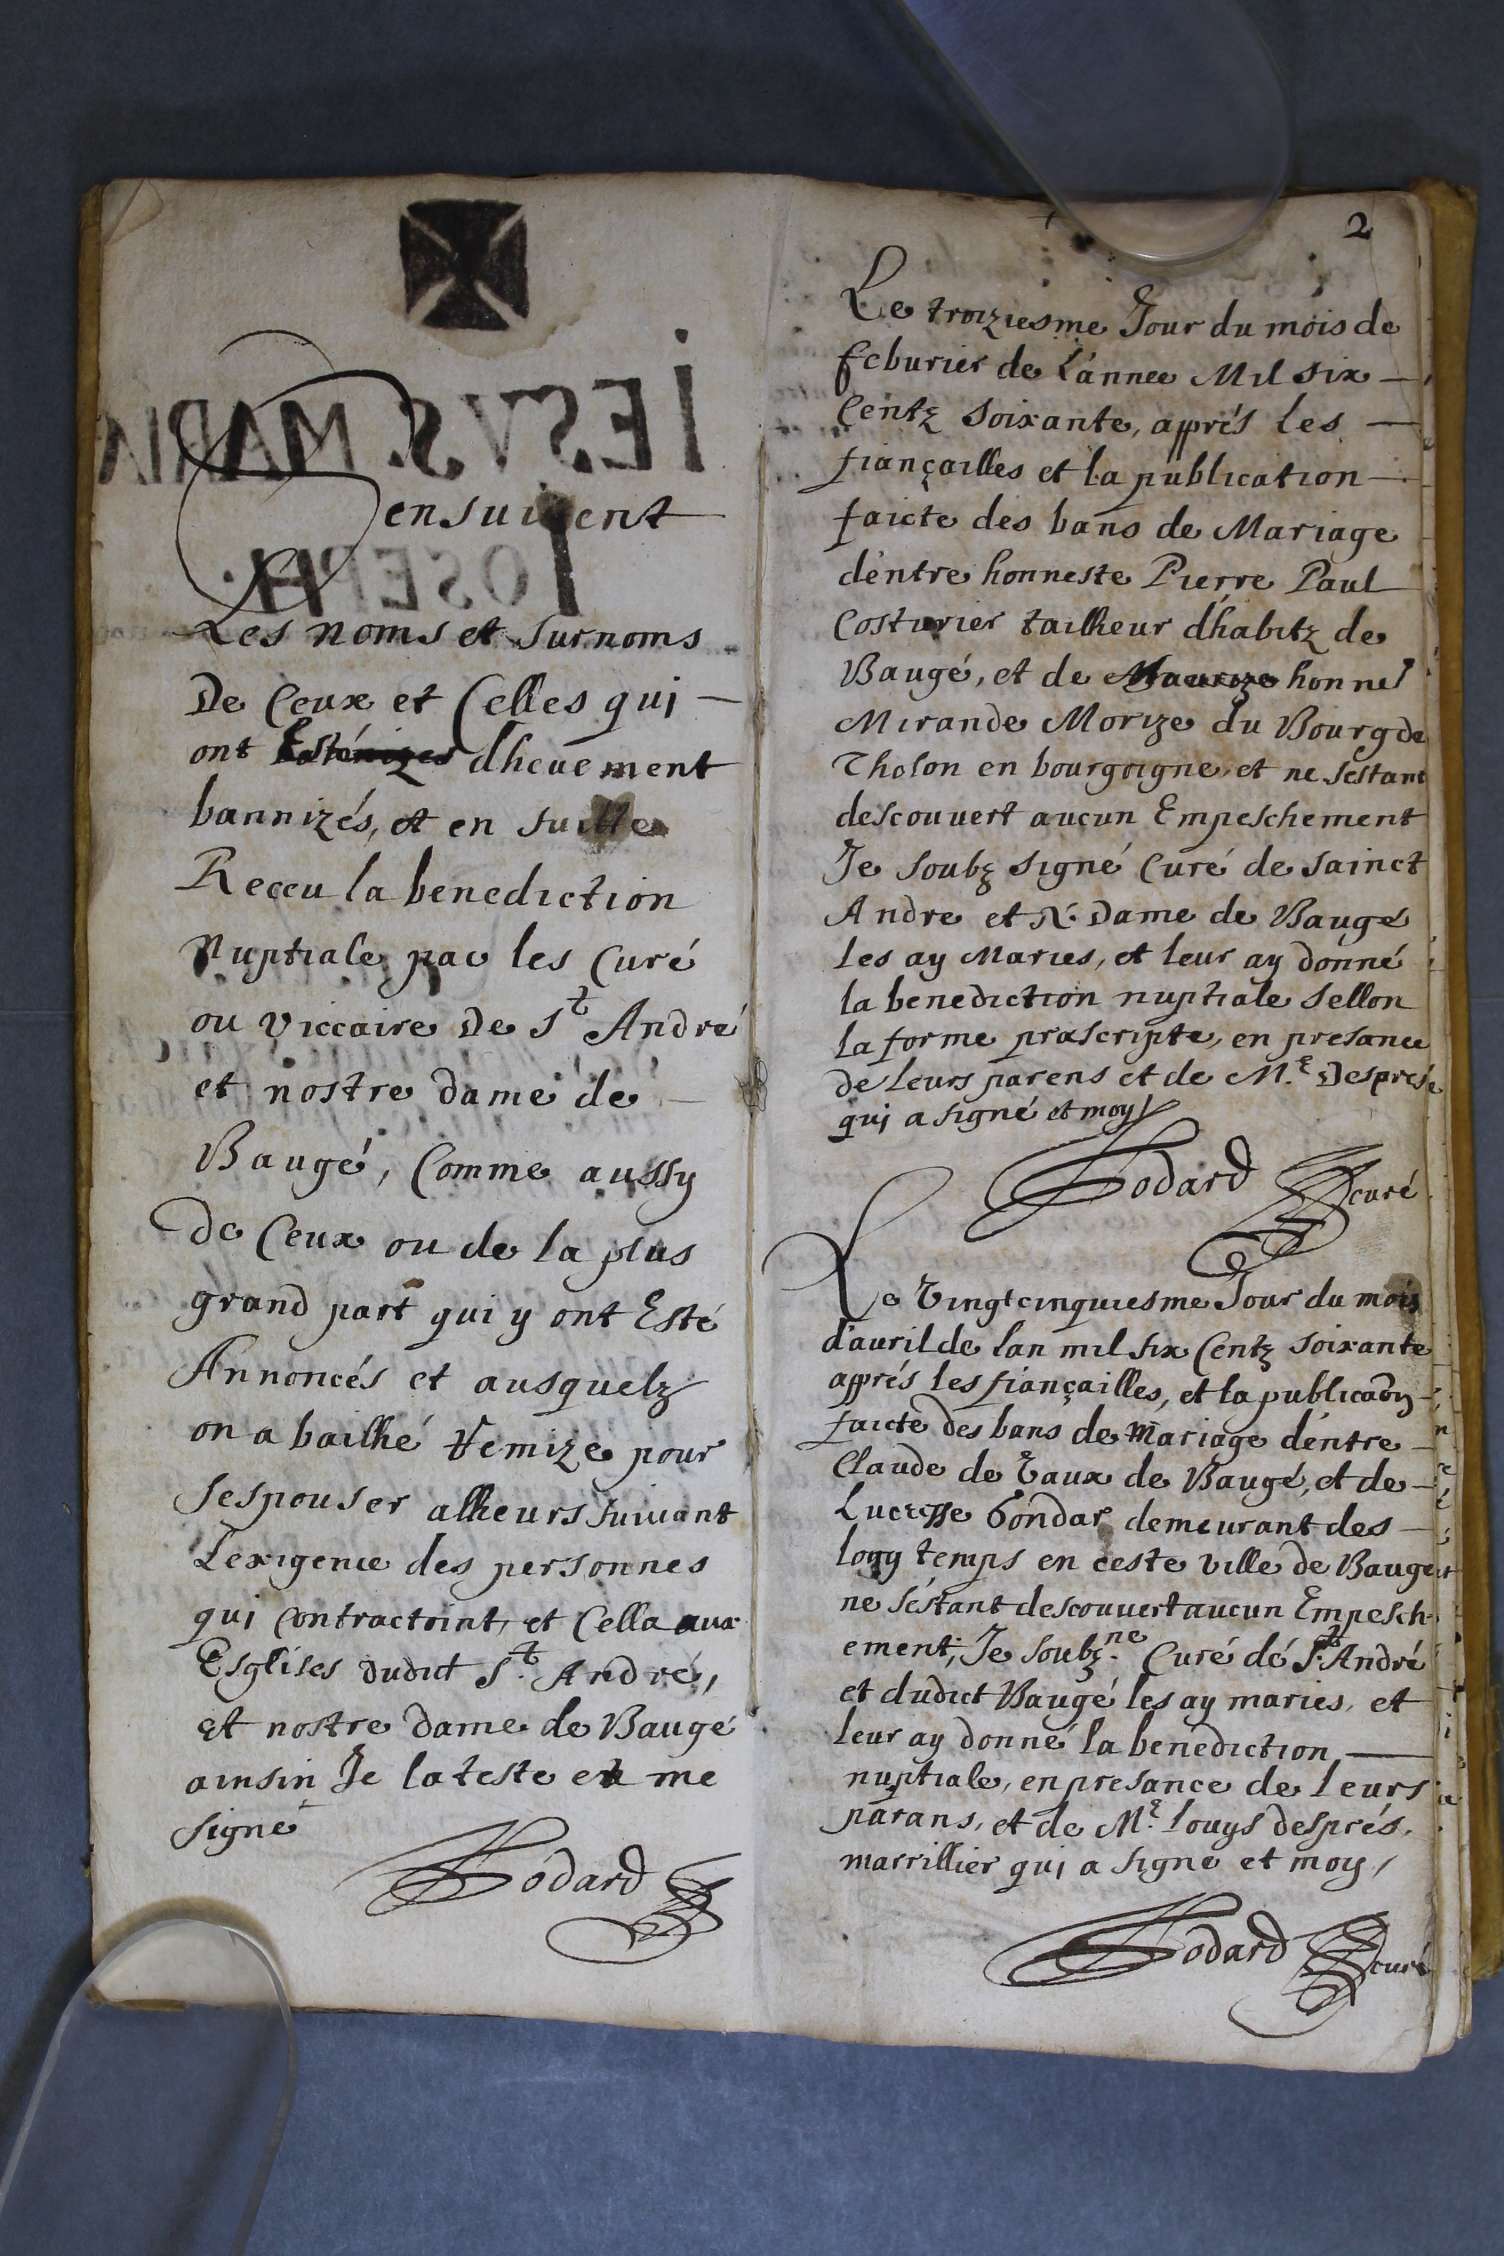 Sensuivent
Les noms et surnoms
De Ceux et Celles qui
ont dheuement
bannizés, et en suitte
Receu la benediction
Nuptiale par les Curé
ou viccaire De St André
et nostre dame de
Baugé, Comme aussy
de Ceux ou de la plus
grand part qui y ont Esté
Annoncés et ausquelz
on a bailhé Remize pour
sespouser alheurs suivant
Lexigence des personnes
qui contractoint, et Cella aux
Esglises dudict St. André,
et nostre dame de Baugé
ainsin Je lateste et me
signé
Godard
2
Le troiziesme Jour du mois de
feburier de L'annee Mil six
Centz soixante, apprés les
fiançailles et la publication
faicte des bans de Mariage
d'entre honneste Pierre Paul
Costurier tailheur d'habitz de
Baugé, et de honne
Mirande Morize du Bourg de
Tholon en bourgoigne, et ne sestant
descouvert aucun Empeschement
Je soubz signé Curé de sainct
Andre et N. Dame de Baugé
les ay Maries, et leur ay donné
la benediction nuptiale sellon
la forme prascripte, en presance
de leurs parens et de Me. Després
qui a signé et moy
Godard curé
Le Vingtcinquiesme Jour du mois
d'auril de lan mil six Centz soixante
apprés les fiançailles, et la publicaõn
faicte des bans de Mariage d'entre
Claude de Vaux de Baugé, et de
Lucresse Gondar demeurant des
long temps en ceste ville de Baugé et
ne s'éstant descouvert aucun Empesch
ement, Je soubz.ne Curé dé St. André
et dudict Baugé les ay maries, et
leur ay donné la benédiction
nuptiale, en presance de leurs
parans, et de Me. Louys després,
marrillier qui a signe et moy,
Godard curé